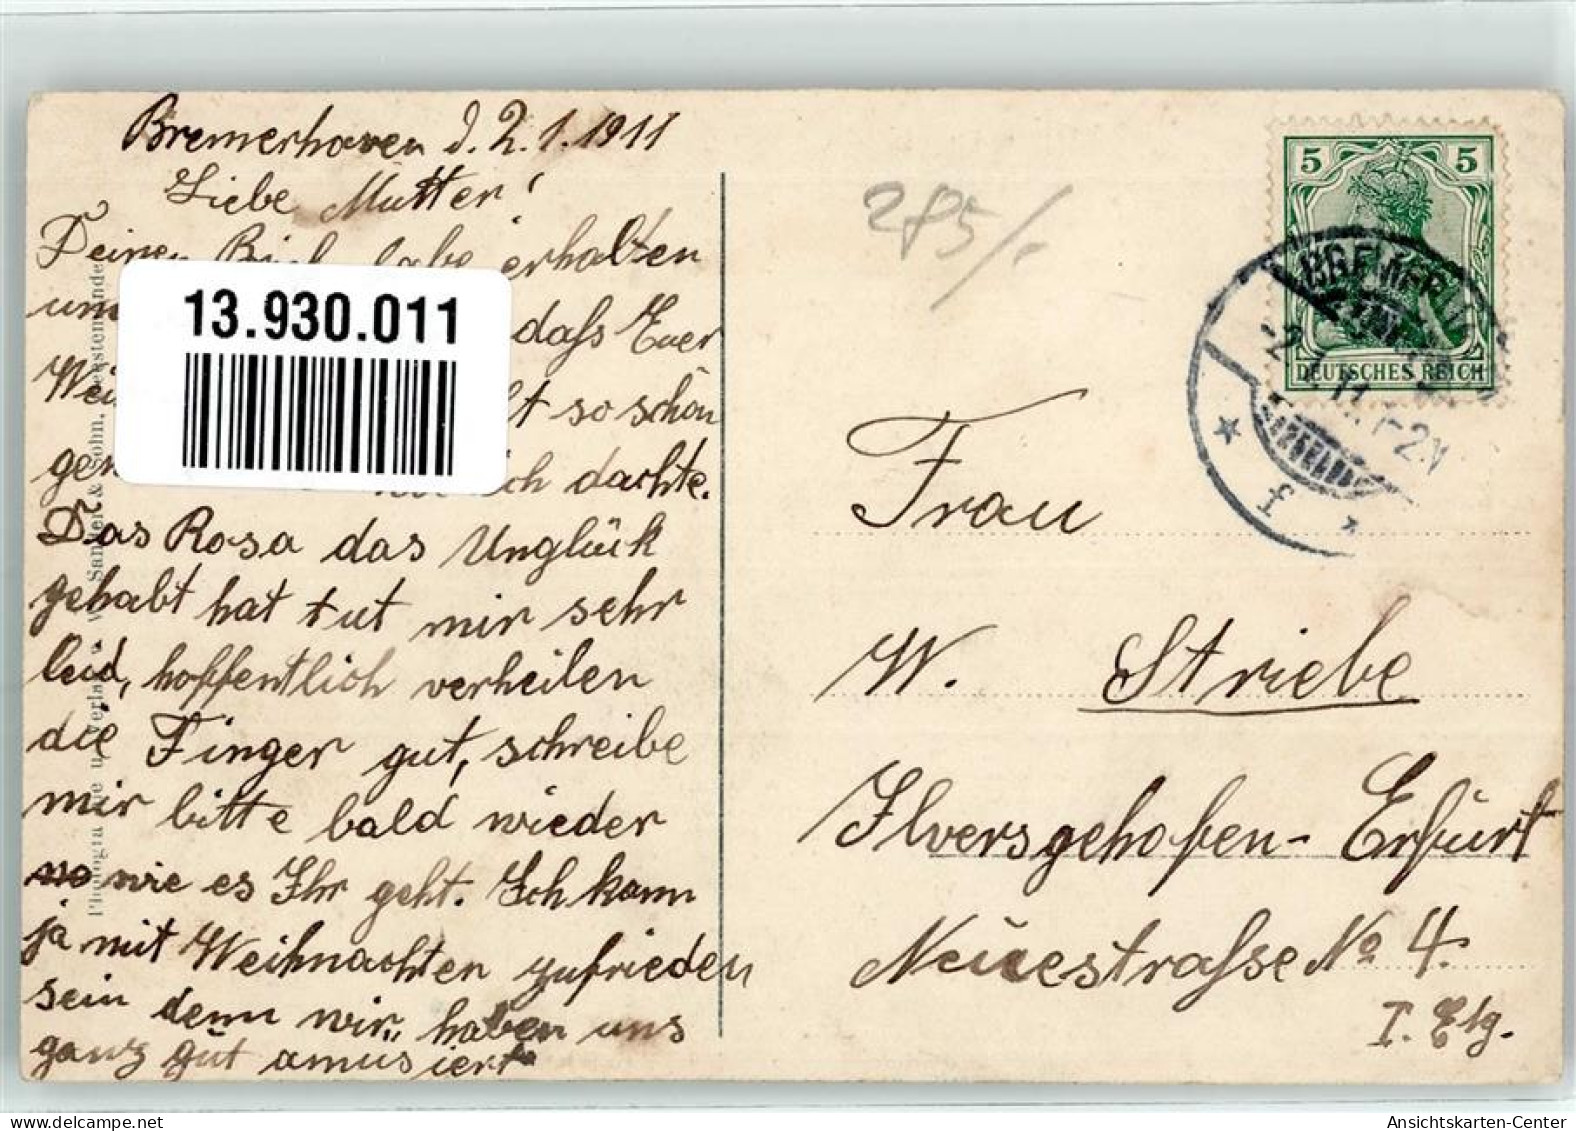 Bremerhaven d. 2.1.1911
Liebe Mutter!
Deinen habe erhalten
daſs Euer
so schön
ich dachte.
Das Rosa das Unglück
gehabt hat tut mir sehr
leid, hoffentlich verheilen
die Finger gut, schreibe
mir bitte bald wieder
wie es Ihr geht. Ich kann
ja mit Weihnachten zufrieden
sein denn wir haben uns
ganz gut amusiert
13.930.011
285/.
5 5
DEUTSCHES REICH
BREMERHAVEN
-2.1.11.1-2N
* f *
Frau
W. Striebe
Ilversgehofen - Erfurt
Neuestraſse No 4.
I. Etg.
Sander & Sohn, Geestemünde
Ansichtskarten-Center